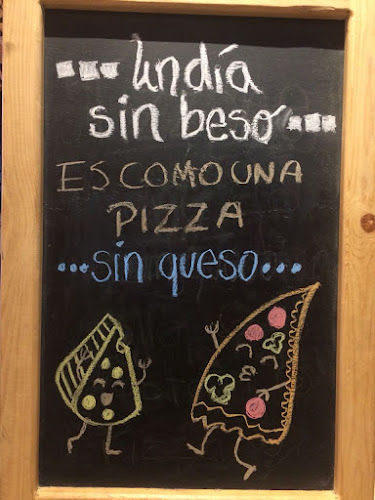 Un día
sin beso
ES COMO UNA
PIZZA
...sin queso...